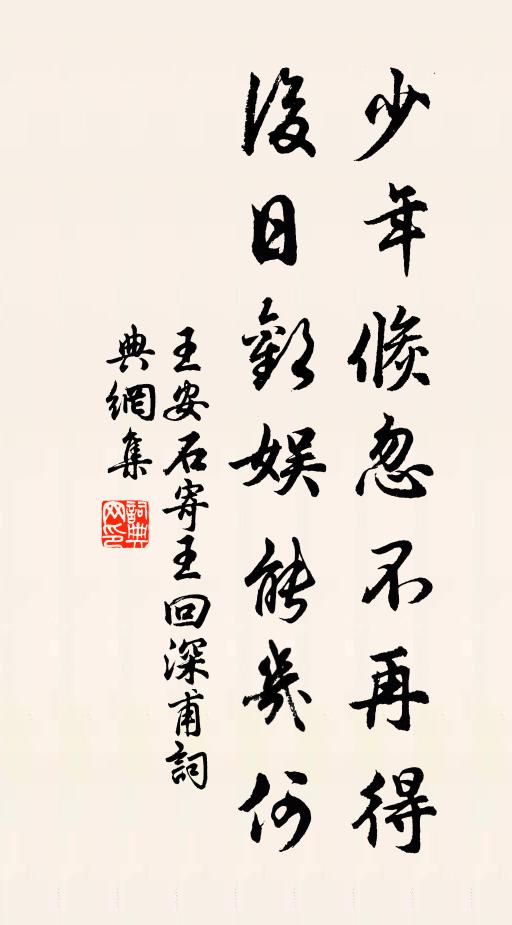 少年倏忽不再得
後日歡娛能幾何
王安石寄王回深甫詞
典網集
詞典
网印